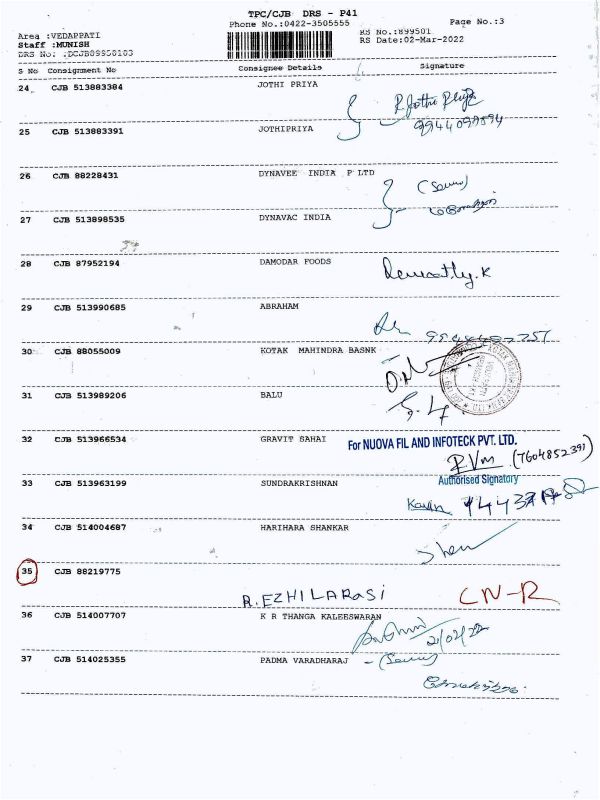 TPC/CJB DRS - P41
Phone No.:0422-3505555 Page No.:3
Area :VEDAPPATI RS No.:899501
Staff :MUNISH RS Date:02-Mar-2022
DRS No: :DCJB09950103
S No Consignment No Consignee Details Signature
24 CJB 513883384 JOTHI PRIYA
R. Jothi Priya
25 CJB 513883391 JOTHIPRIYA
26 CJB 88228431 DYNAVEE INDIA P LTD
27 CJB 513898535 DYNAVAC INDIA
28 CJB 87952194 DAMODAR FOODS
29 CJB 513990685 ABRAHAM
30 CJB 88055009 KOTAK MAHINDRA BASNK
31 CJB 513989206 BALU
32 CJB 513966534 GRAVIT SAHAI For NUOVA FIL AND INFOTECK PVT. LTD.
(7604852391)
Authorised Signatory
33 CJB 513963199 SUNDRAKRISHNAN
Kavin
34 CJB 514004687 HARIHARA SHANKAR
35 CJB 88219775
R. EZHILARASI CN-R
36 CJB 514007707 K R THANGA KALEESWARAN
37 CJB 514025355 PADMA VARADHARAJ